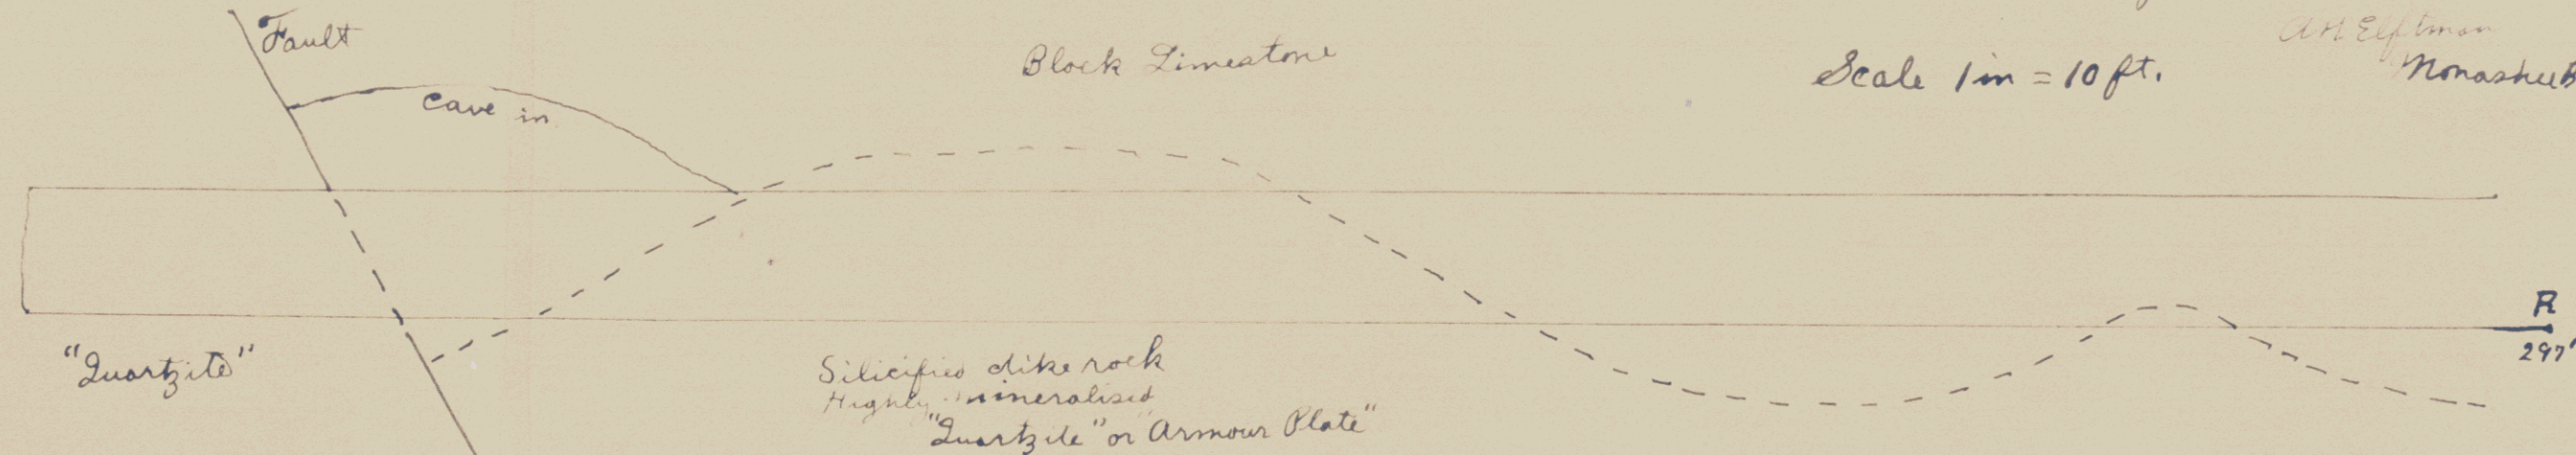 Fault
cave in
Block Limestone
Scale 1 in = 10 ft.
A H Elftman
Monashee
R
297'
"Quartzite"
Silicified dike rock
Highly mineralised
"Quartzite" or "Armour Plate"